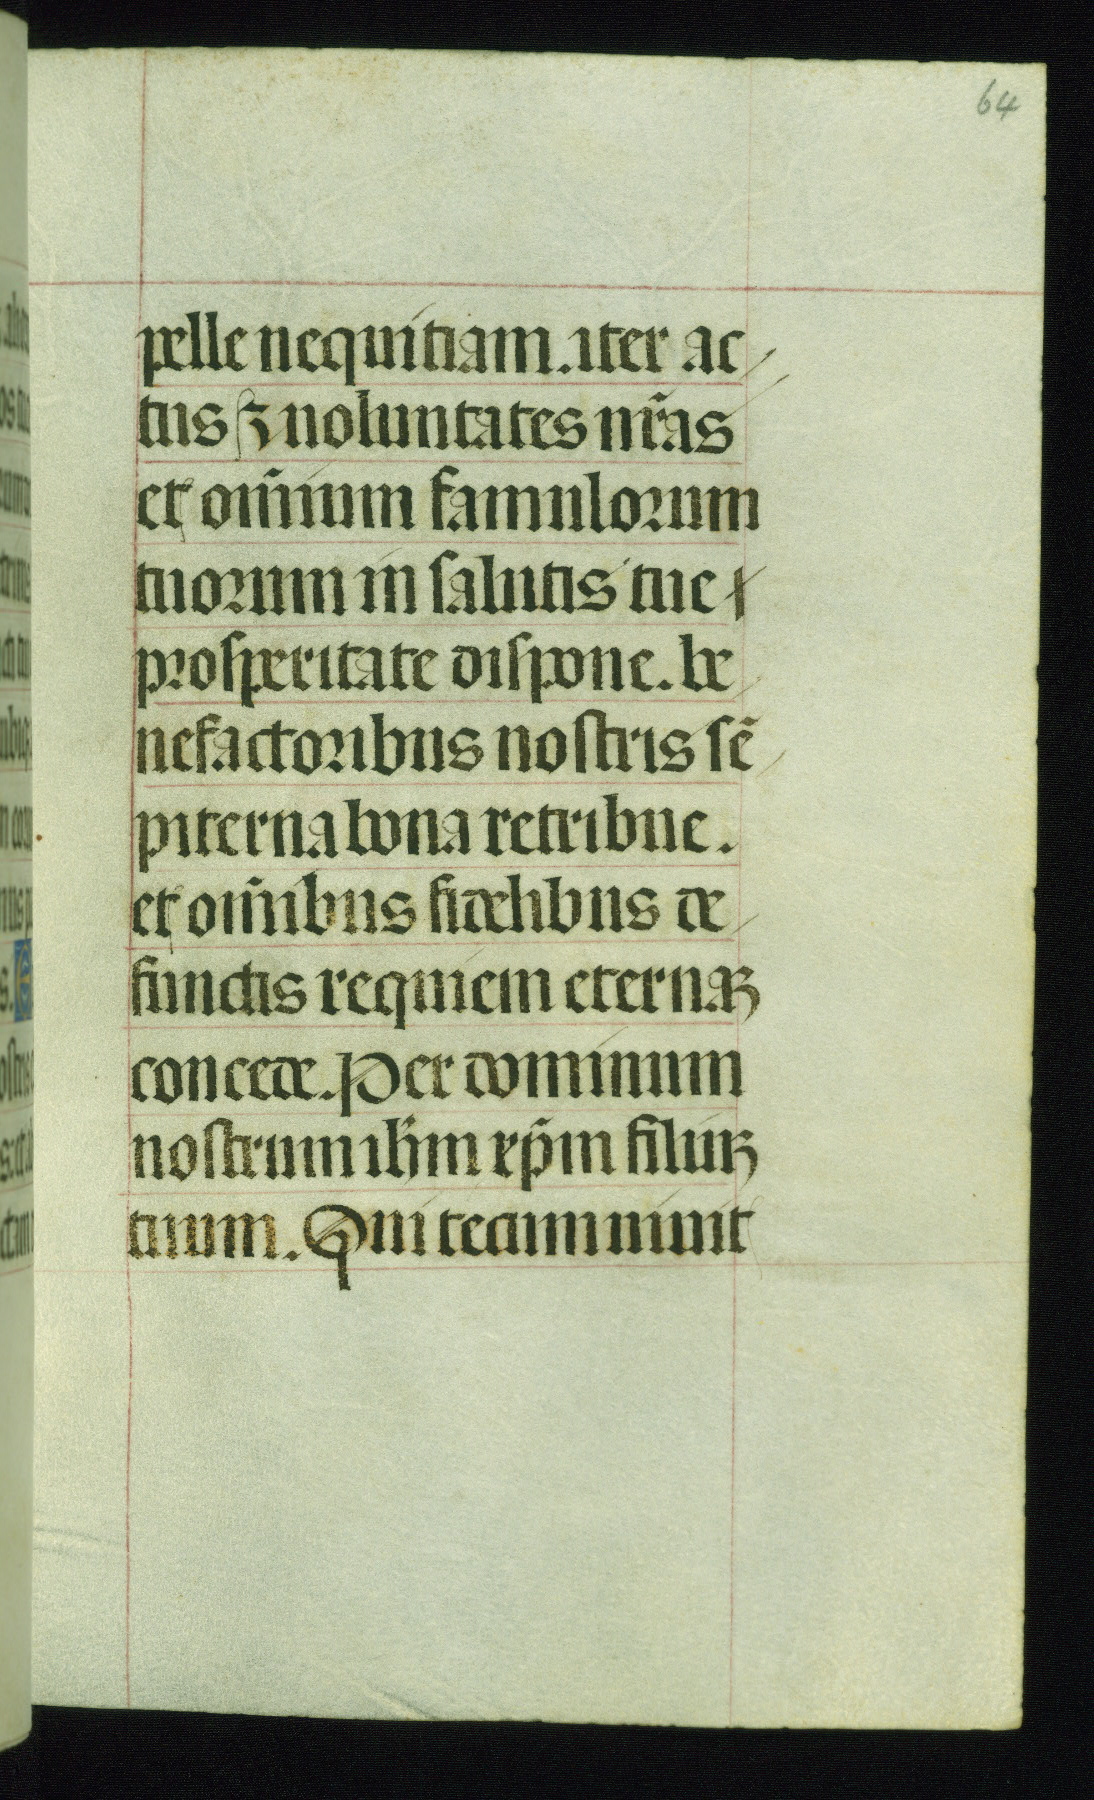 64
pelle nequitiam. iter ac
tus ⁊ uoluntates nr̄as
et om̄ium famulorum
tuorum in salutis tue
prosperitate dispone. be
nefactoribus nostris sē
piterna bona retribue.
et om̄ibus fidelibus de
functis requiem eternaꝫ
concede. Per dominum
nostrum ih̄m xp̄m filiuꝫ
tuum. Qui tecum uiuit